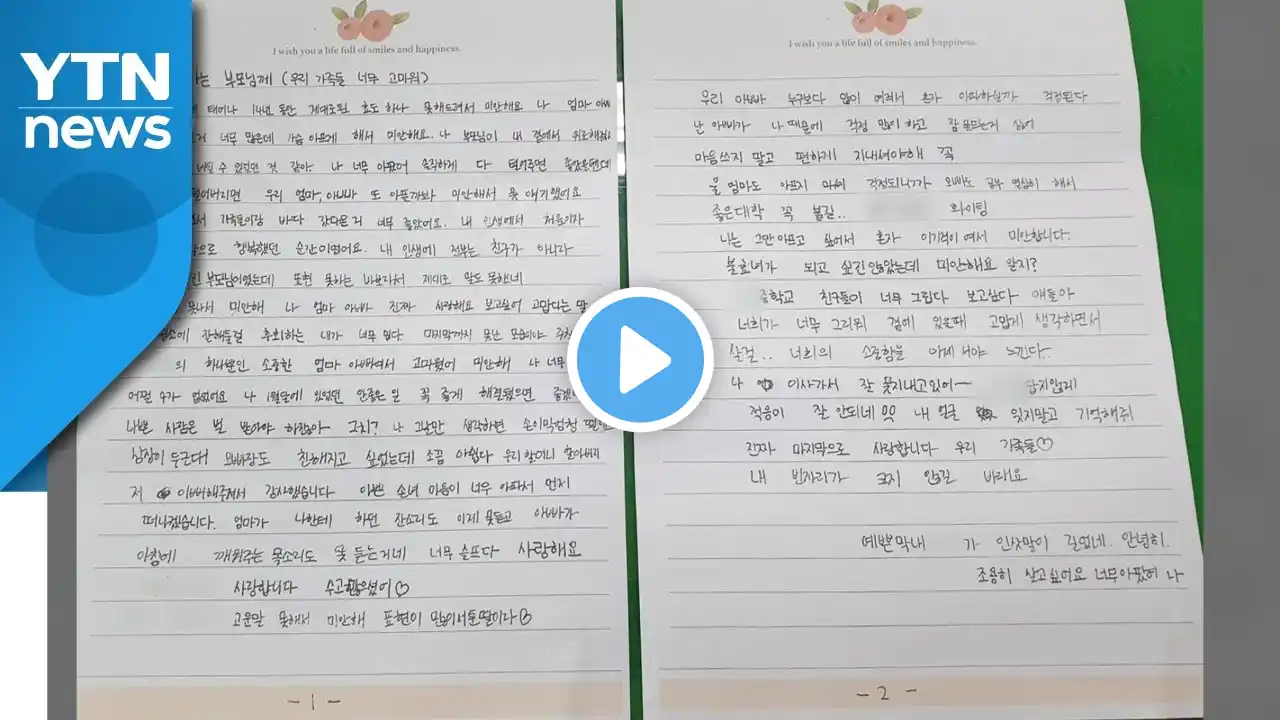 YTN
news
I wish you a life full of smiles and happiness.
는 부모님께 (우리 가족들 너무 고마워)
태어나 14년 동안 제대로된 효도 하나 못해드려서 미안해요 나 엄마 아빠
너무 많은데 가슴 아프게 해서 미안해요. 나 부모님이 내 곁에서 위로해줘서
수 있었던 것 같아. 나 너무 아팠어 솔직하게 다 털어주면 좋았을텐데
털어버리면 우리 엄마, 아빠가 또 아플까봐 미안해서 못 얘기했어요
가족들이랑 바다 갔다온 거 너무 좋았어요. 내 인생에서 처음이자
으로 행복했던 순간이였어요. 내 인생에 전부는 친구가 아니라
부모님이였는데 표현 못하는 바보라서 제대로 말도 못했네
못나서 미안해 나 엄마 아빠 진짜 사랑해요 보고싶어 고맙다는 말
잘해둘걸 후회하는 내가 너무 밉다. 마지막까지 못난 모습이야
의 하나뿐인 소중한 엄마 아빠여서 고마웠어 미안해 나 너무
어쩔 수가 없었어요 나 1월달에 있었던 안좋은 일 꼭 좋게 해결됐으면 좋겠
나쁜 사람은 벌 받아야 하잖아 그치? 나 그날만 생각하면 손이막엄청 떨리
심장이 두근대 오빠랑도 친해지고 싶었는데 조금 아쉽다 우리 할머니 할아버지
저 이뻐해주셔서 감사했습니다 이쁜 손녀 마음이 너무 아파서 먼저
떠나겠습니다. 엄마가 나한테 하던 잔소리도 이제 못듣고 아빠가
아침에 깨워주는 목소리도 못 듣는거네 너무 슬프다 사랑해요
사랑합니다 수고많으셨어♡
고운말 못해서 미안해 표현이 많이서툰딸이라♡
- 1 -
I wish you a life full of smiles and happiness.
우리 아빠 누구보다 많이 여려서 혼자 아파하실까 걱정된다
난 아빠가 나 때문에 걱정 많이 하고 잠 못드는게 싫어
마음쓰지 말고 편하게 지내셔야해 꼭
울 엄마도 아프지 걱정되니까 오빠도 공부 열심히 해서
좋은대학 꼭 붙길.. 화이팅
나는 그만 아프고 싶어서 혼자 이기적이여서 미안합니다.
불효녀가 되고 싶진 않았는데 미안해요 알지?
중학교 친구들이 너무 그립다 보고싶다 얘들아
너희가 너무 그리워 곁에 있을때 고맙게 생각하면서
살걸.. 너희의 소중함을 이제 서야 느낀다..
나 이사가서 잘 못지내고있어~ 답지않게
적응이 잘 안되네 00 내 얼굴 잊지말고 기억해줘
진짜 마지막으로 사랑합니다 우리 가족들♡
내 빈자리가 크지 않길 바래요
예쁜막내 가 인삿말이 길었네. 안녕히.
조용히 살고싶어요 너무아팠어 나
- 2 -